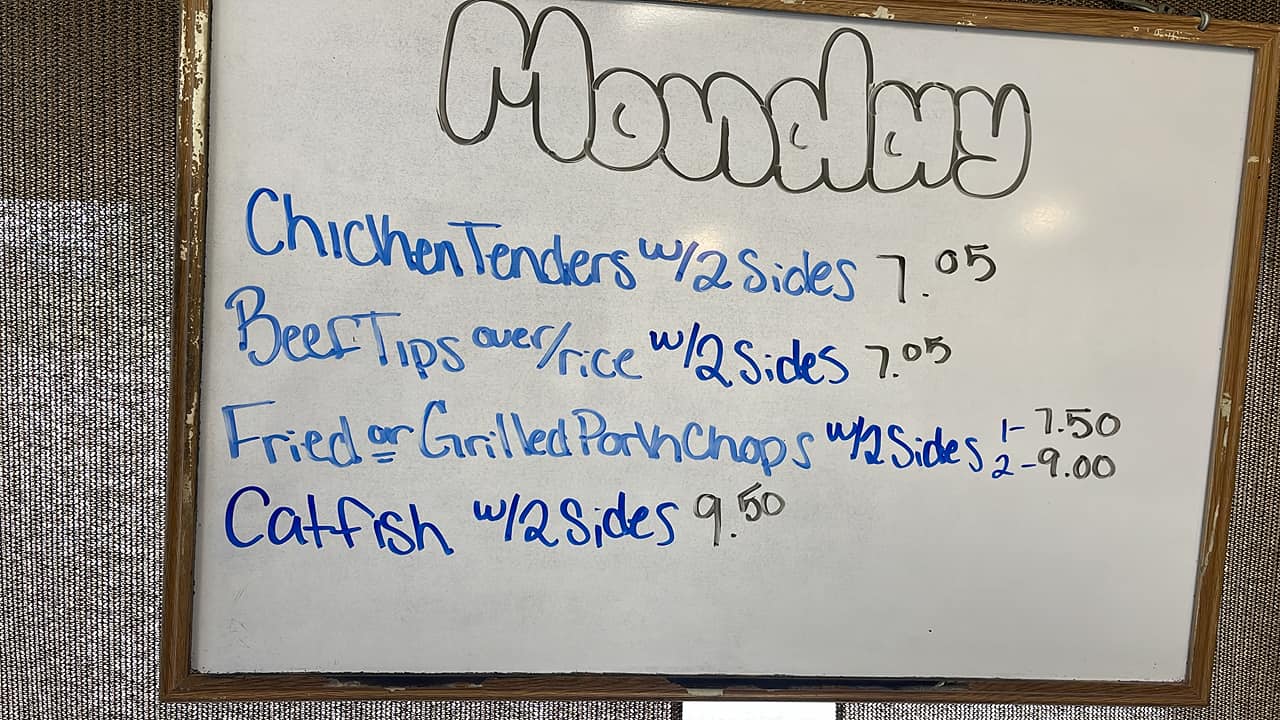 Monday
Chicken Tenders w/2 Sides 7.05
Beef Tips over/rice w/2 Sides 7.05
Fried or Grilled Pork Chops w/2 Sides 1-7.50
2-9.00
Catfish w/2 Sides 9.50